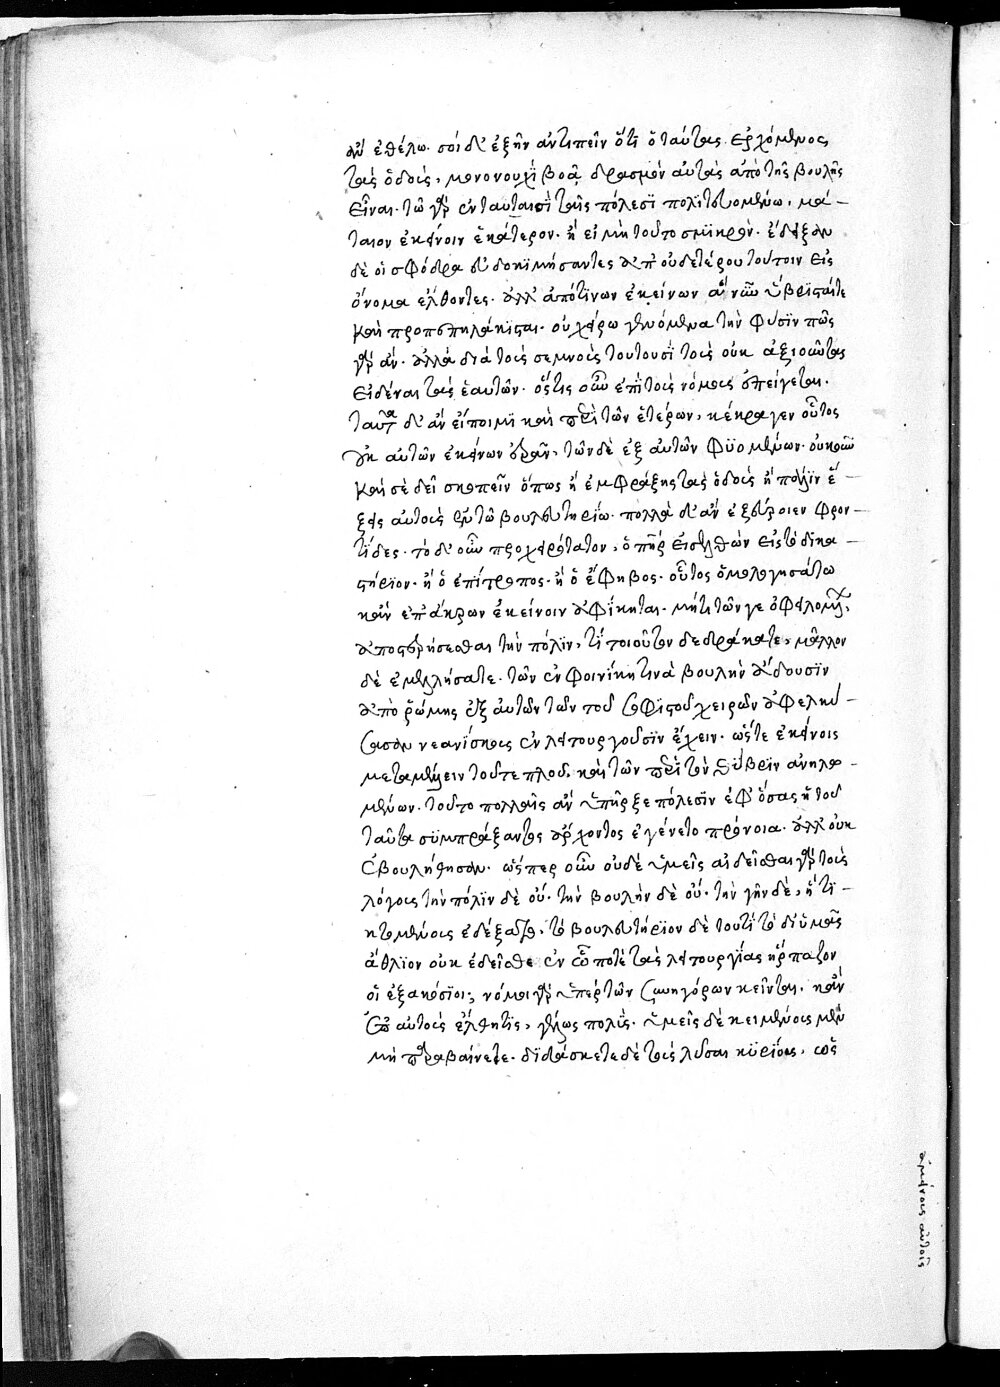 οὐ ἐθέλω. σοὶ δ' ἐξῆν ἀντιπεῖν ὅτι ὁ ταύτας ἐρχόμενος
τὰς ὁδοὺς, μονονουχὶ βοᾷ δρασμὸν αὐτὰς ἀπὸ τῆς βουλῆς
εἶναι. τῷ γὰρ ἐν ταυταισὶ ταῖς πόλεσι πολιτευομένω, μά-
ταιον ἐκείνοιν ἑκάτερον. ἢ εἰ μὴ τοῦτο σμικρὸν. ἔδειξαν
δὲ οἱ σφόδρα εὐδοκιμήσαντες ἀπ' οὐδετέρου τούτοιν εἰς
ὄνομα ἐλθόντες. ἀλλ' ἀπὸ τίνων ἐκείνων ἃ νῦν ὕβρισταί τε
καὶ προπεπηλάκισται. οὐ χείρω γενόμενα τὴν φύσιν πῶς
γὰρ ἄν. ἀλλὰ διὰ τοὺς σεμνοὺς τουτουσὶ τοὺς οὐκ ἀξιοῦντας
εἰδέναι τὰς ἑαυτῶν. ὅστις οὖν ἐπὶ τοὺς νόμους ἐπείγεται.
ταῦτα δ' ἂν εἴποιμι καὶ περὶ τῶν ἑτέρων, κέκραγεν οὗτος
οὐκ αὐτῶν ἐκείνων ἐρᾶν, τῶν δὲ ἐξ αὐτῶν φυομένων. οὐκοῦν
καὶ σὲ δεῖ σκοπεῖν ὅπως ἢ ἐμφράξης τὰς ὁδοὺς ἢ πάλιν ἕ-
ξεις αὐτοὺς ἐν τῷ βουλευτηρίω. πολλὰ δ' ἂν ἐξεύροιεν φρον-
τίδες. τὸ δ' οὖν προχειρότατον, ὁ πατὴρ εἰσελθὼν εἰς τὸ δικα-
στήριον. ἢ ὁ ἐπίτροπος. ἢ ὁ ἔφηβος. οὗτος ὁμολογησάτω
κἂν ἐπ' ἄκρων ἐκείνοιν ἀφίκηται. μήτι τῶν γε ὀφειλομένων,
ἀποστερήσεσθαι τὴν πόλιν, τί τοιοῦτον δεδράκατε, μᾶλλον
δὲ ἐμελλήσατε. τῶν ἐν φοινίκη τινὰ βουλὴν ἀίδουσιν
ἀπὸ ῥώμης ἐξ αὐτῶν τῶν τοῦ σοφιστοῦ χειρῶν ἀφελκύ-
σασαν νεανίσκους ἐν λειτουργοῦσιν ἔχειν. ὥστε ἐκείνοις
μεταμέλειν τοῦ τε πλοῦ. καὶ τῶν περὶ τὸν θύβριν ἀνηλω-
μένων. τοῦτο πολλαῖς ἂν ὑπῆρξε πόλεσιν ἐφ' ὅσας ἡ τοῦ
ταῦτα συμπράξαντος ἄρχοντος ἐγένετο πρόνοια. ἀλλ' οὐκ
ἐβουλήθησαν. ὥσπερ οὖν οὐδὲ ὑμεῖς αἰδεῖσθαι γὰρ τοὺς
λόγους τὴν πόλιν δὲ οὔ. τὴν βουλὴν δὲ οὔ. τὴν γῆν δὲ, ἢ τι-
κτομένους ἐδέξατο, τὸ βουλευτήριον δὲ τουτὶ τὸ δι' ὑμᾶς
ἄθλιον οὐκ ἐδεῖσθε. ἐν ᾧ ποτὲ τὰς λειτουργίας ἥρπαζον
οἱ ἑξακόσιοι; νόμοι γὰρ ὑπὲρ τῶν συνηγόρων κεῖνται. κἂν
ἐπ' αὐτοὺς ἔλθη τις, γέλως πολὺς. ὑμεῖς δὲ κειμένους μὲν
μὴ παραβαίνετε. διδάσκετε δὲ τοὺς λῦσαι κυρίους, ὡς
ἀμείνους αὐτοῖς